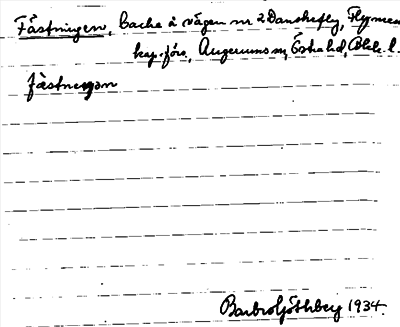 Fästningen, backe å vägen nr 2 Danskefly, Flymen
kap.förs., Augerums sn, Östra hd, Blek. l.
fästnengan
Barbro Göthberg 1934.